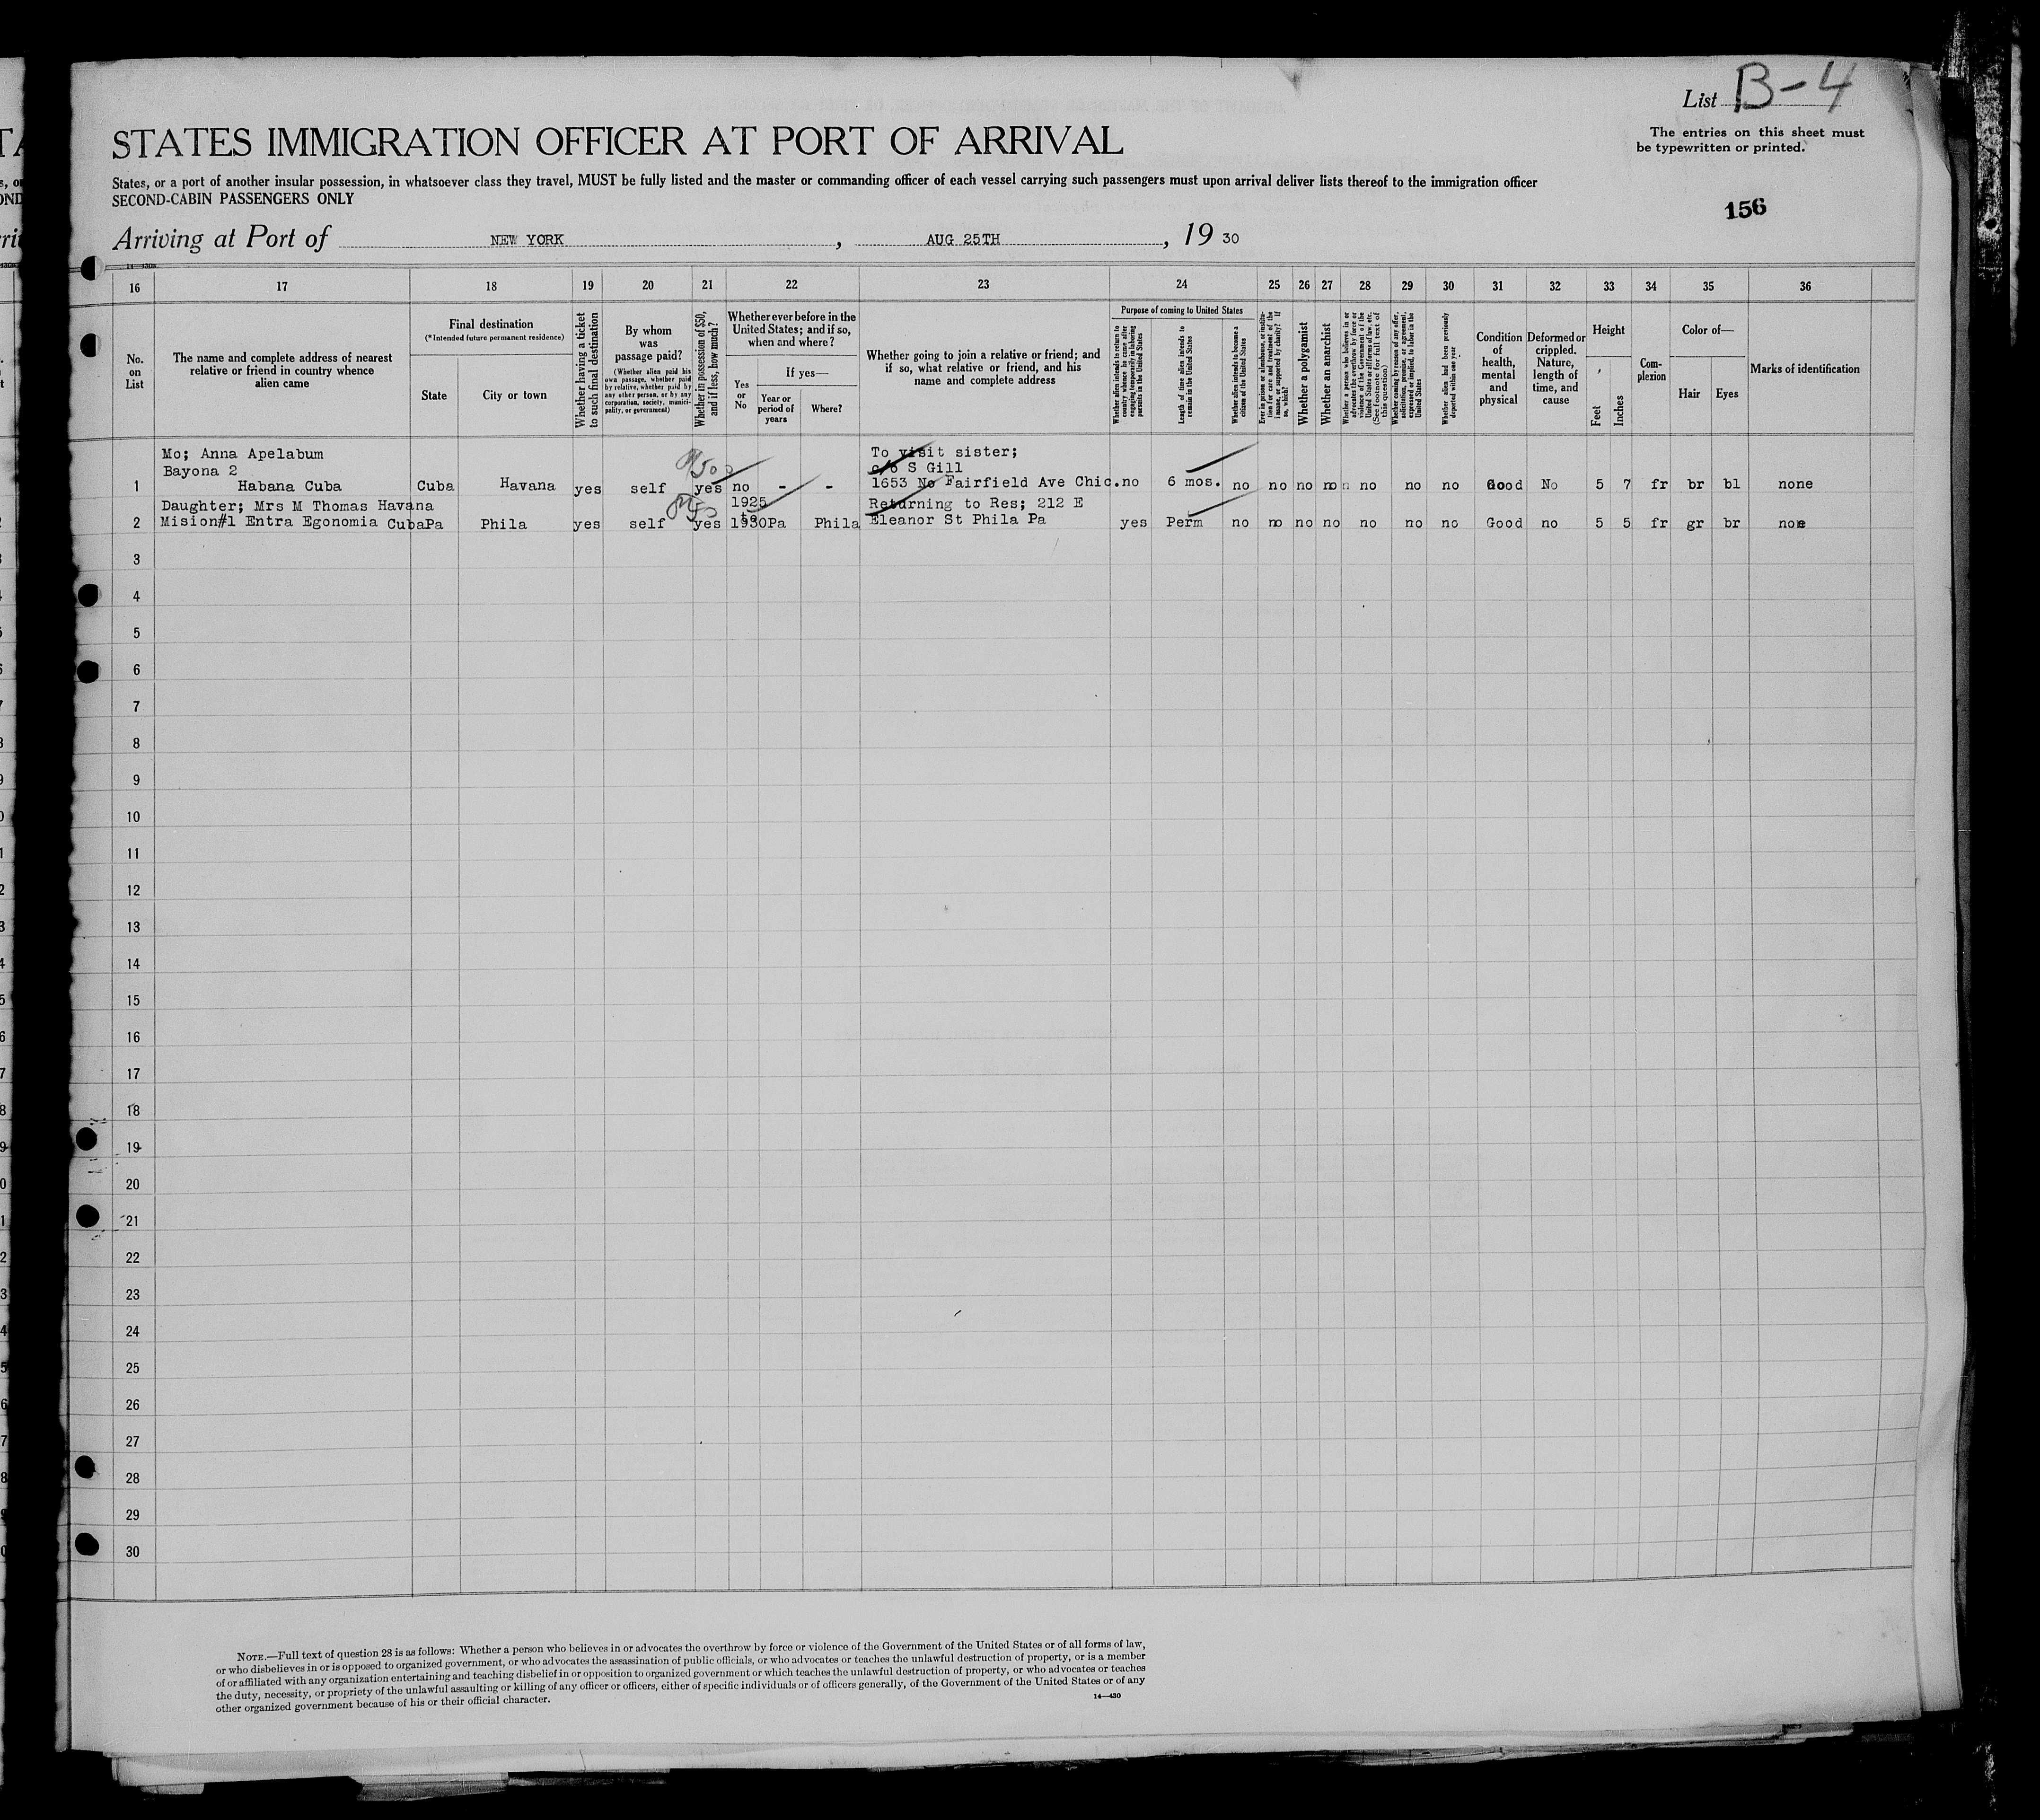 List B-4
STATES IMMIGRATION OFFICER AT PORT OF ARRIVAL
The entries on this sheet must
be typewritten or printed.
States, or a port of another insular possession, in whatsoever class they travel, MUST be fully listed and the master or commanding officer of each vessel carrying such passengers must upon arrival deliver lists thereof to the immigration officer
SECOND-CABIN PASSENGERS ONLY
156
Arriving at Port of NEW YORK, AUG 25TH, 19 30
16 17 18 19 20 21 22 23 24 25 26 27 28 29 30 31 32 33 34 35 36
No.
on
List
The name and complete address of nearest
relative or friend in country whence
alien came
Final destination
(*Intended future permanent residence)
State
City or town
Whether having a ticket
to such final destination
By whom
was
passage paid?
(Whether alien paid his
own passage, whether paid
by relative, whether paid by
any other person, or by any
corporation, society, munici-
pality, or government)
Whether in possession of $50,
and if less, how much?
Whether ever before in the
United States; and if so,
when and where?
Yes
or
No
If yes—
Year or
period of
years
Where?
Whether going to join a relative or friend; and
if so, what relative or friend, and his
name and complete address
Purpose of coming to United States
Whether alien intends to return to
country whence he came after
engaging temporarily in laboring
pursuits in the United States
Length of time alien intends to
remain in the United States
Whether alien intends to become a
citizen of the United States
Ever in prison or almshouse, or institu-
tion for care and treatment of the
insane, or supported by charity? If
so, which?
Whether a polygamist
Whether an anarchist
Whether a person who believes in or
advocates the overthrow by force or
violence of the Government of the
United States or all forms of law, etc.
(See footnote for full text of
this question)
Whether coming by reason of any offer,
solicitation, promise, or agreement,
expressed or implied, to labor in the
United States
Whether alien had been previously
deported within one year
Condition
of
health,
mental
and
physical
Deformed or
crippled.
Nature,
length of
time, and
cause
Height
Feet
Inches
Com-
plexion
Color of—
Hair
Eyes
Marks of identification
Mo; Anna Apelabum
Bayona 2
To visit sister;
c/o S Gill
1 Habana Cuba Cuba Havana yes self yes no - - 1653 No Fairfield Ave Chic. no 6 mos. no no no no no no no Good No 5 7 fr br bl none
Daughter; Mrs M Thomas Havana 1925 Returning to Res; 212 E
to
2 Mision#1 Entra Egonomia Cuba Pa Phila yes self yes 1930 Pa Phila Eleanor St Phila Pa yes Perm no no no no no no no Good no 5 5 fr gr br none
3
4
5
6
7
8
9
10
11
12
13
14
15
16
17
18
19
20
21
22
23
24
25
26
27
28
29
30
NOTE.—Full text of question 28 is as follows: Whether a person who believes in or advocates the overthrow by force or violence of the Government of the United States or of all forms of law,
or who disbelieves in or is opposed to organized government, or who advocates the assassination of public officials, or who advocates or teaches the unlawful destruction of property, or is a member
of or affiliated with any organization entertaining and teaching disbelief in or opposition to organized government or which teaches the unlawful destruction of property, or who advocates or teaches
the duty, necessity, or propriety of the unlawful assaulting or killing of any officer or officers, either of specific individuals or of officers generally, of the Government of the United States or of any
other organized government because of his or their official character.
14—430